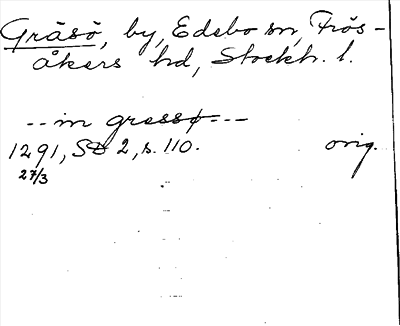 Gräsö, by, Edebo sn, Frös-
åkers hd, Stockh. l.
-- in gressø ---
1291, SD 2, s. 110. orig.
27/3